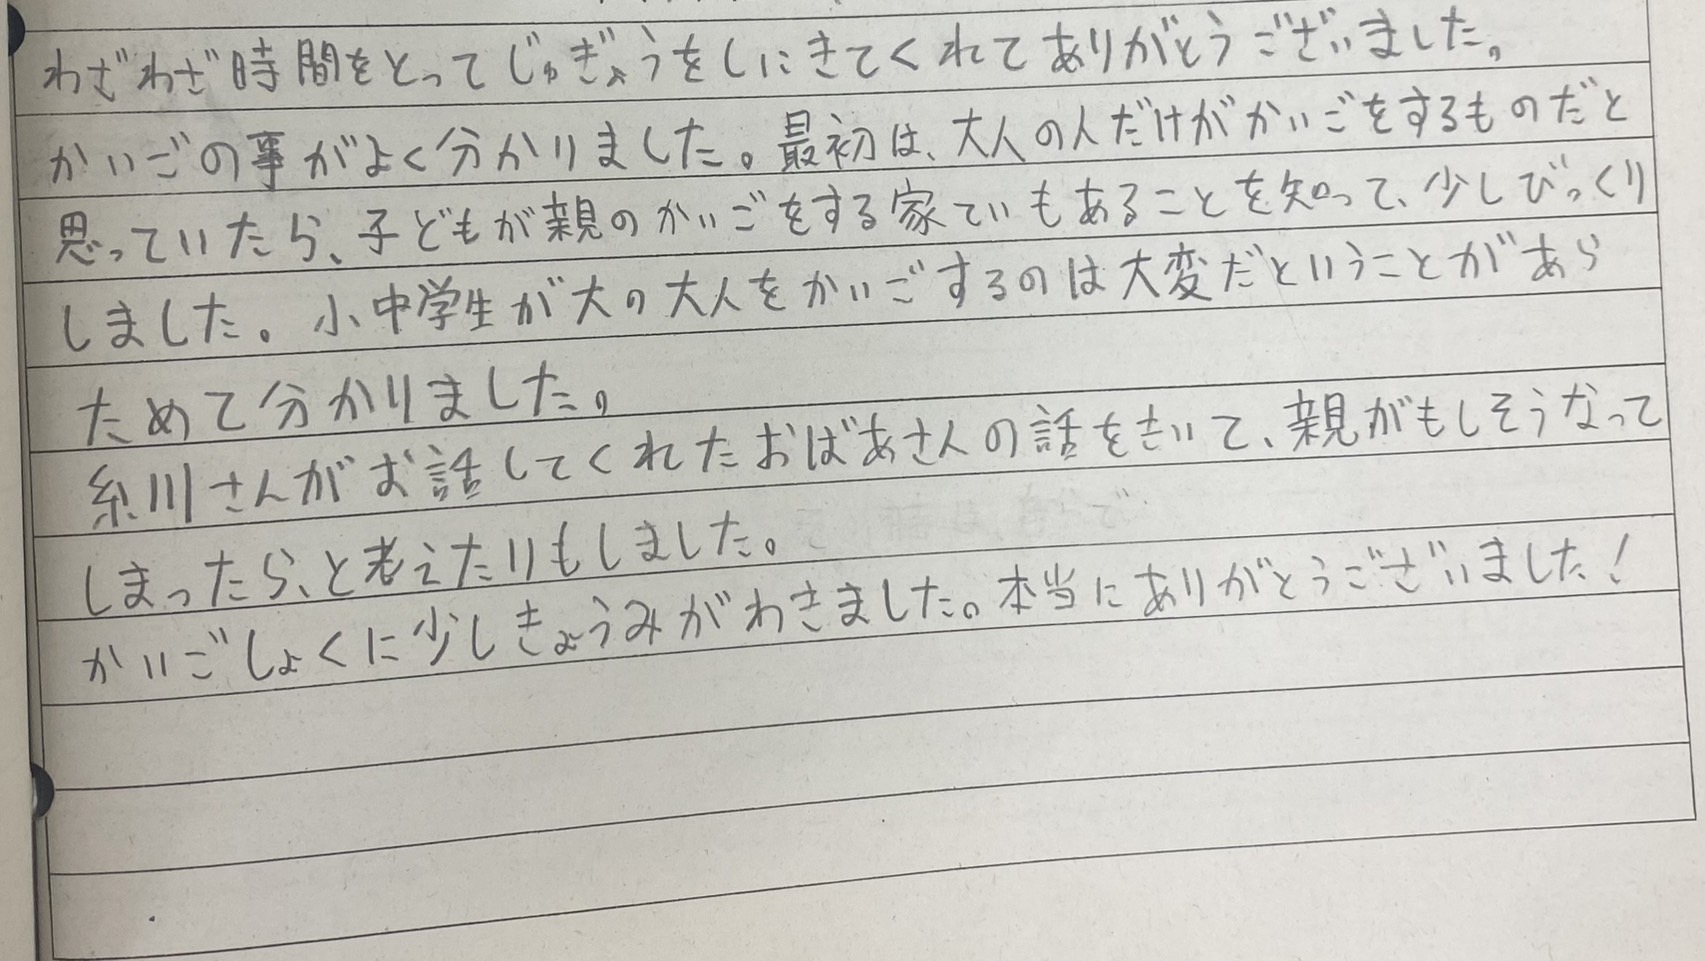 わざわざ時間をとってじゅぎょうをしにきてくれてありがとうございました。
かいごの事がよく分かりました。最初は、大人の人だけがかいごをするものだと
思っていたら、子どもが親のかいごをする家ていもあることを知って、少しびっくり
しました。小中学生が大の大人をかいごするのは大変だということがあら
ためて分かりました。
糸川さんがお話してくれたおばあさんの話をきいて、親がもしそうなって
しまったら、と考えたりもしました。
かいごしょくに少しきょうみがわきました。本当にありがとうございました!